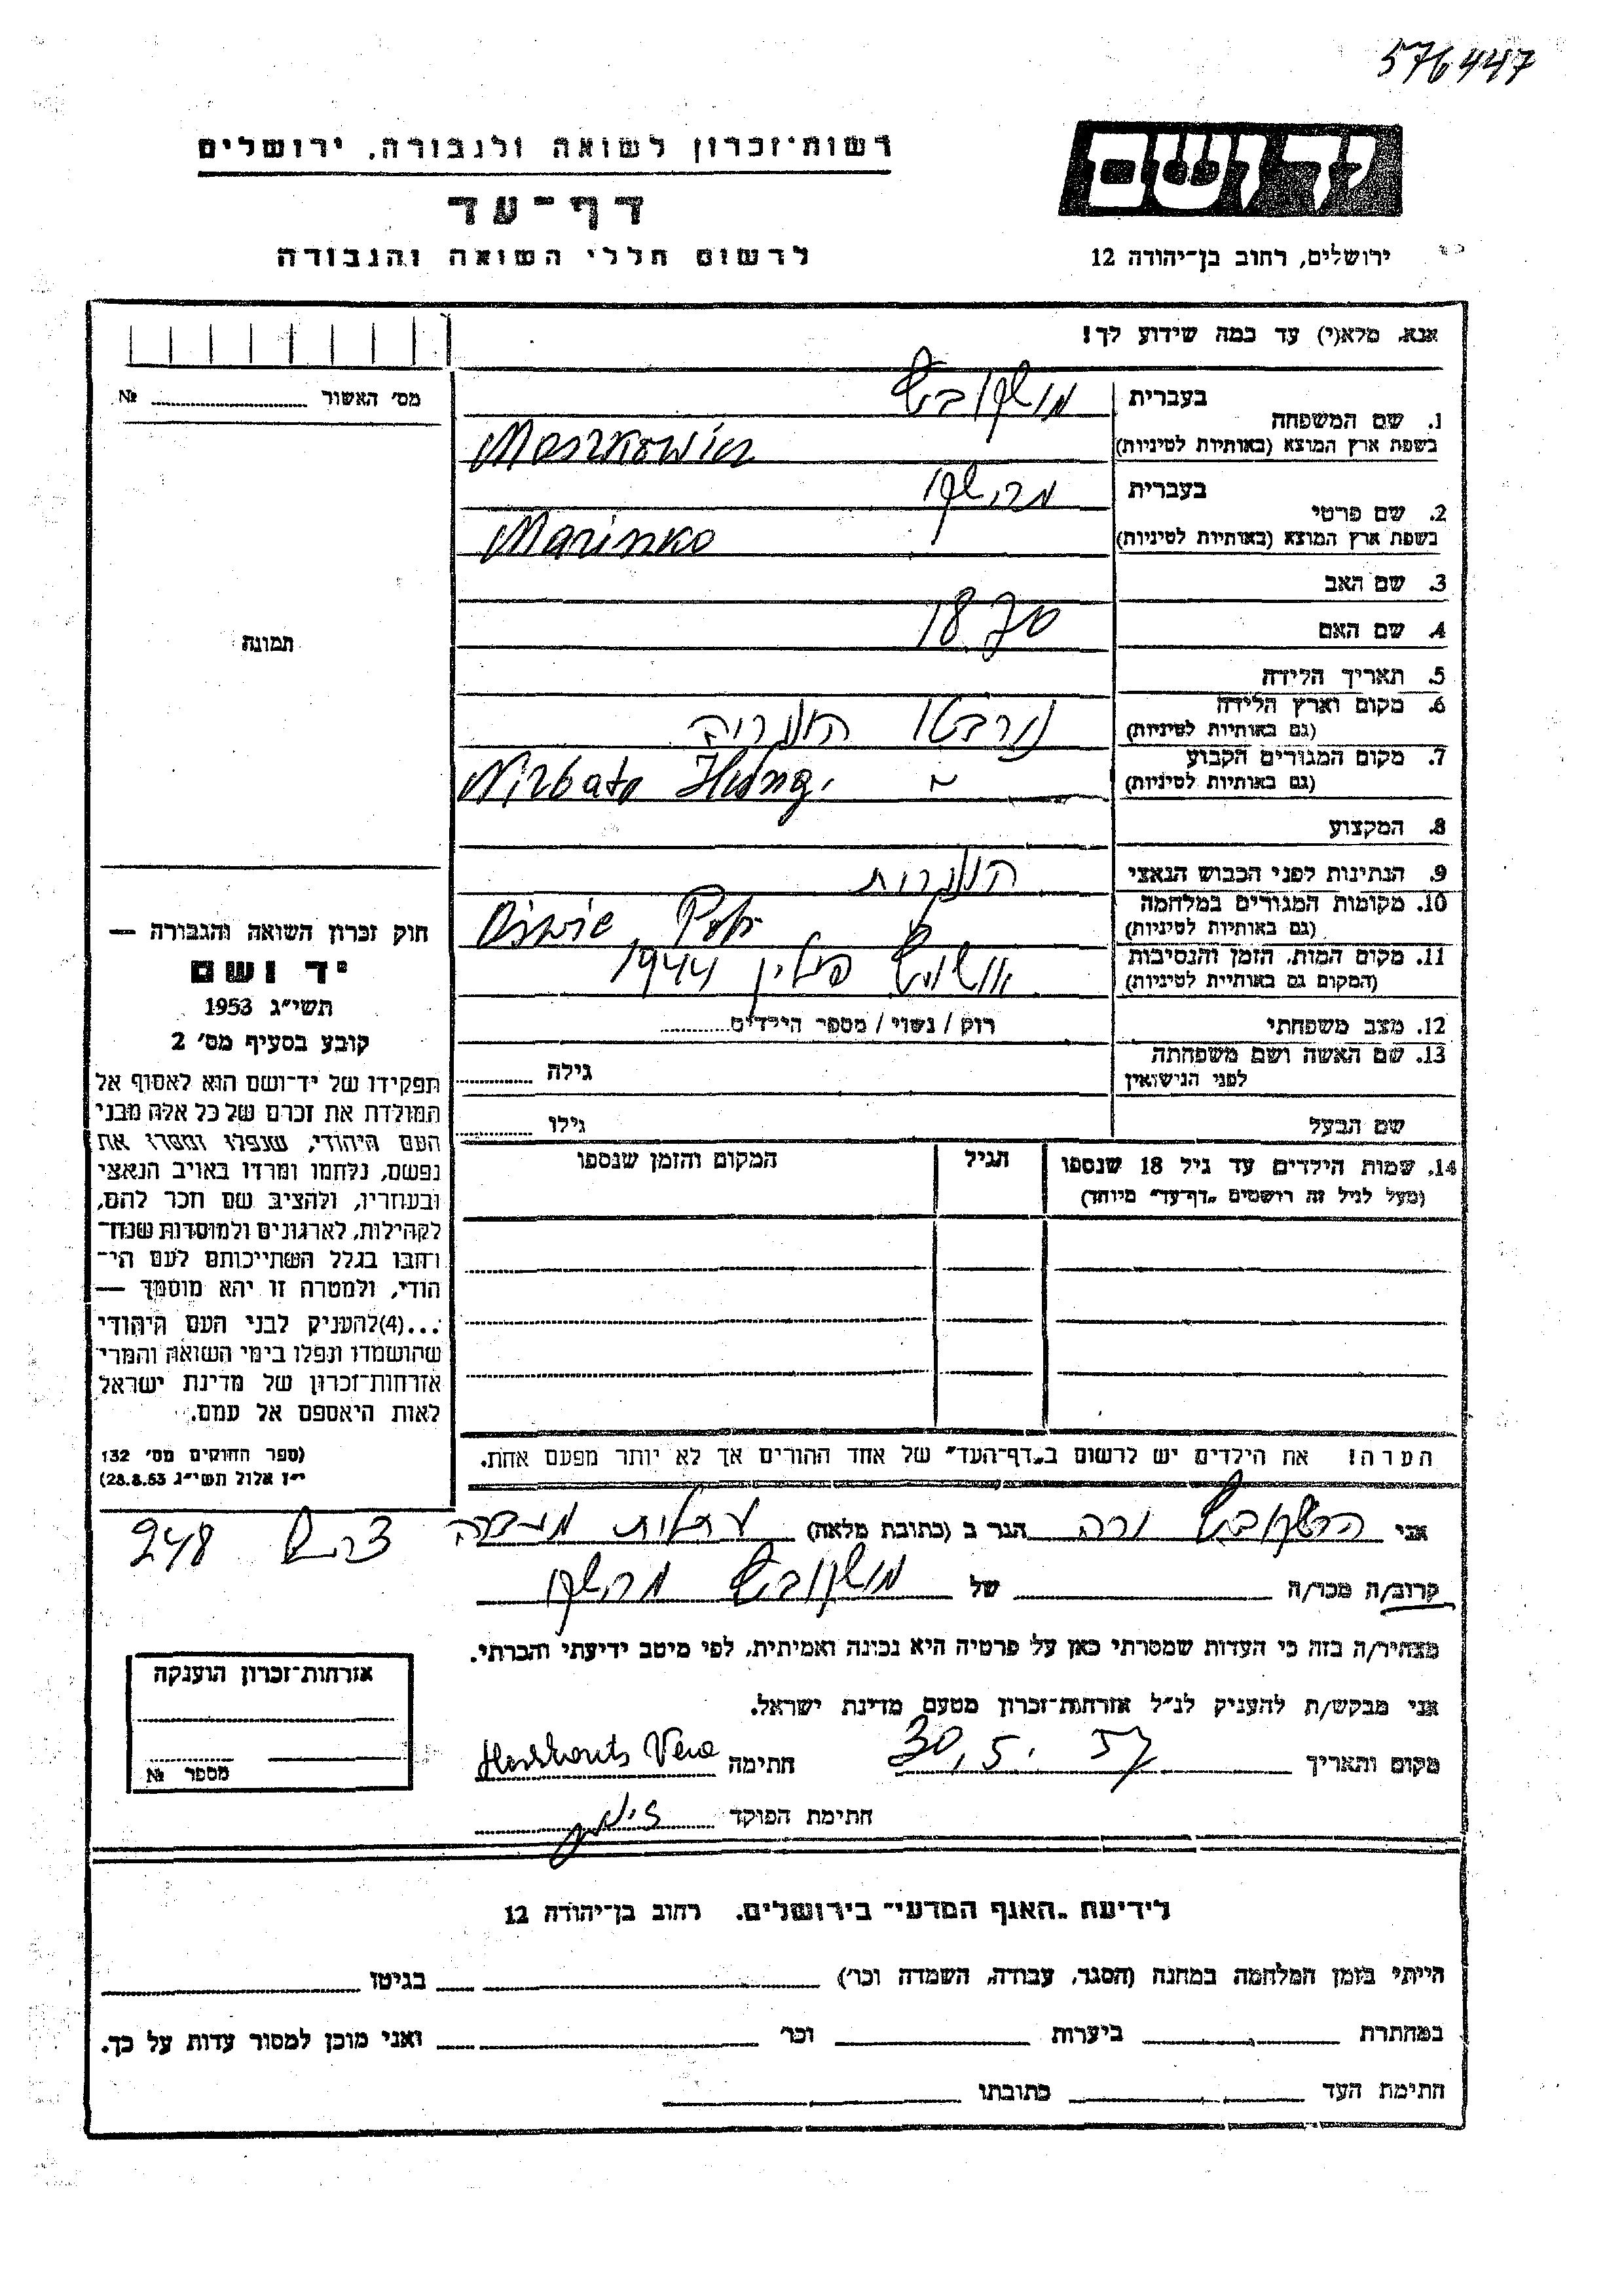 576447
יד ושם
רשות־זכרון לשואה ולגבורה, ירושלים
דף־עד
לרשום חללי השואה והגבורה
ירושלים, רחוב בן־יהודה 12
אנא, מלא(י) עד כמה שידוע לך!
מס׳ האשור № 
בעברית מושקוביץ
1. שם המשפחה
בשפת ארץ המוצא (באותיות לטיניות) Moszkowicz
בעברית
2. שם פרטי
בשפת ארץ המוצא (באותיות לטיניות)
3. שם האב
4. שם האם
1870
5. תאריך הלידה
6. מקום וארץ הלידה
(גם באותיות לטיניות)
7. מקום המגורים הקבוע
(גם באותיות לטיניות)
8. המקצוע
9. הנתינות לפני הכבוש הנאצי
10. מקומות המגורים במלחמה
(גם באותיות לטיניות)
11. מקום המות, הזמן והנסיבות 1944 פולין
(המקום גם באותיות לטיניות)
12. מצב משפחתי רוק / נשוי / מספר הילדים
13. שם האשה ושם משפחתה גילה
לפני הנישואין
שם הבעל גילו
תמונה
חוק זכרון השואה והגבורה —
יד ושם
תשי״ג 1953
קובע בסעיף מס׳ 2
תפקידו של יד־ושם הוא לאסוף אל
המולדת את זכרם של כל אלה מבני
העם היהודי, שנפלו ומסרו את
נפשם, נלחמו ומרדו באויב הנאצי
ובעוזריו, ולהציב שם וזכר להם,
לקהילות, לארגונים ולמוסדות שנח־
רחבו בגלל השתייכותם לעם הי־
הודי, ולמטרה זו יהא מוסמך —
...(4)להעניק לבני העם היהודי
שהושמדו ונפלו בימי השואה והמרי
אזרחות־זכרון של מדינת ישראל
לאות היאספם אל עמם.
(ספר החוקים מס׳ 132
י״ז אלול תשי״ג 28.8.53)
14. שמות הילדים עד גיל 18 שנספו הגיל המקום והזמן שנספו
(מעל לגיל זה רושמים „דף־עד״ מיוחד)
הערה! את הילדים יש לרשום ב„דף־העד״ של אחד ההורים אך לא יותר מפעם אחת.
אני ורה הגר ב (כתובת מלאה) עתלית 248
קרוב/ה מכר/ה של מושקוביץ
מצהיר/ה בזה כי העדות שמסרתי כאן על פרטיה היא נכונה ואמיתית, לפי מיטב ידיעתי והכרתי.
אני מבקש/ת להעניק לנ״ל אזרחות־זכרון מטעם מדינת ישראל.
מקום ותאריך 30.5.57 חתימה Vera
חתימת הפוקד
אזרחות־זכרון הוענקה
מספר №
לידיעת „האגף המדעי״ בירושלים. רחוב בן־יהודה 12
הייתי בזמן המלחמה במחנה (הסגר, עבודה, השמדה וכו׳) בגיטו
במחתרת ביערות וכו׳ ואני מוכן למסור עדות על כך.
חתימת העד כתובתו